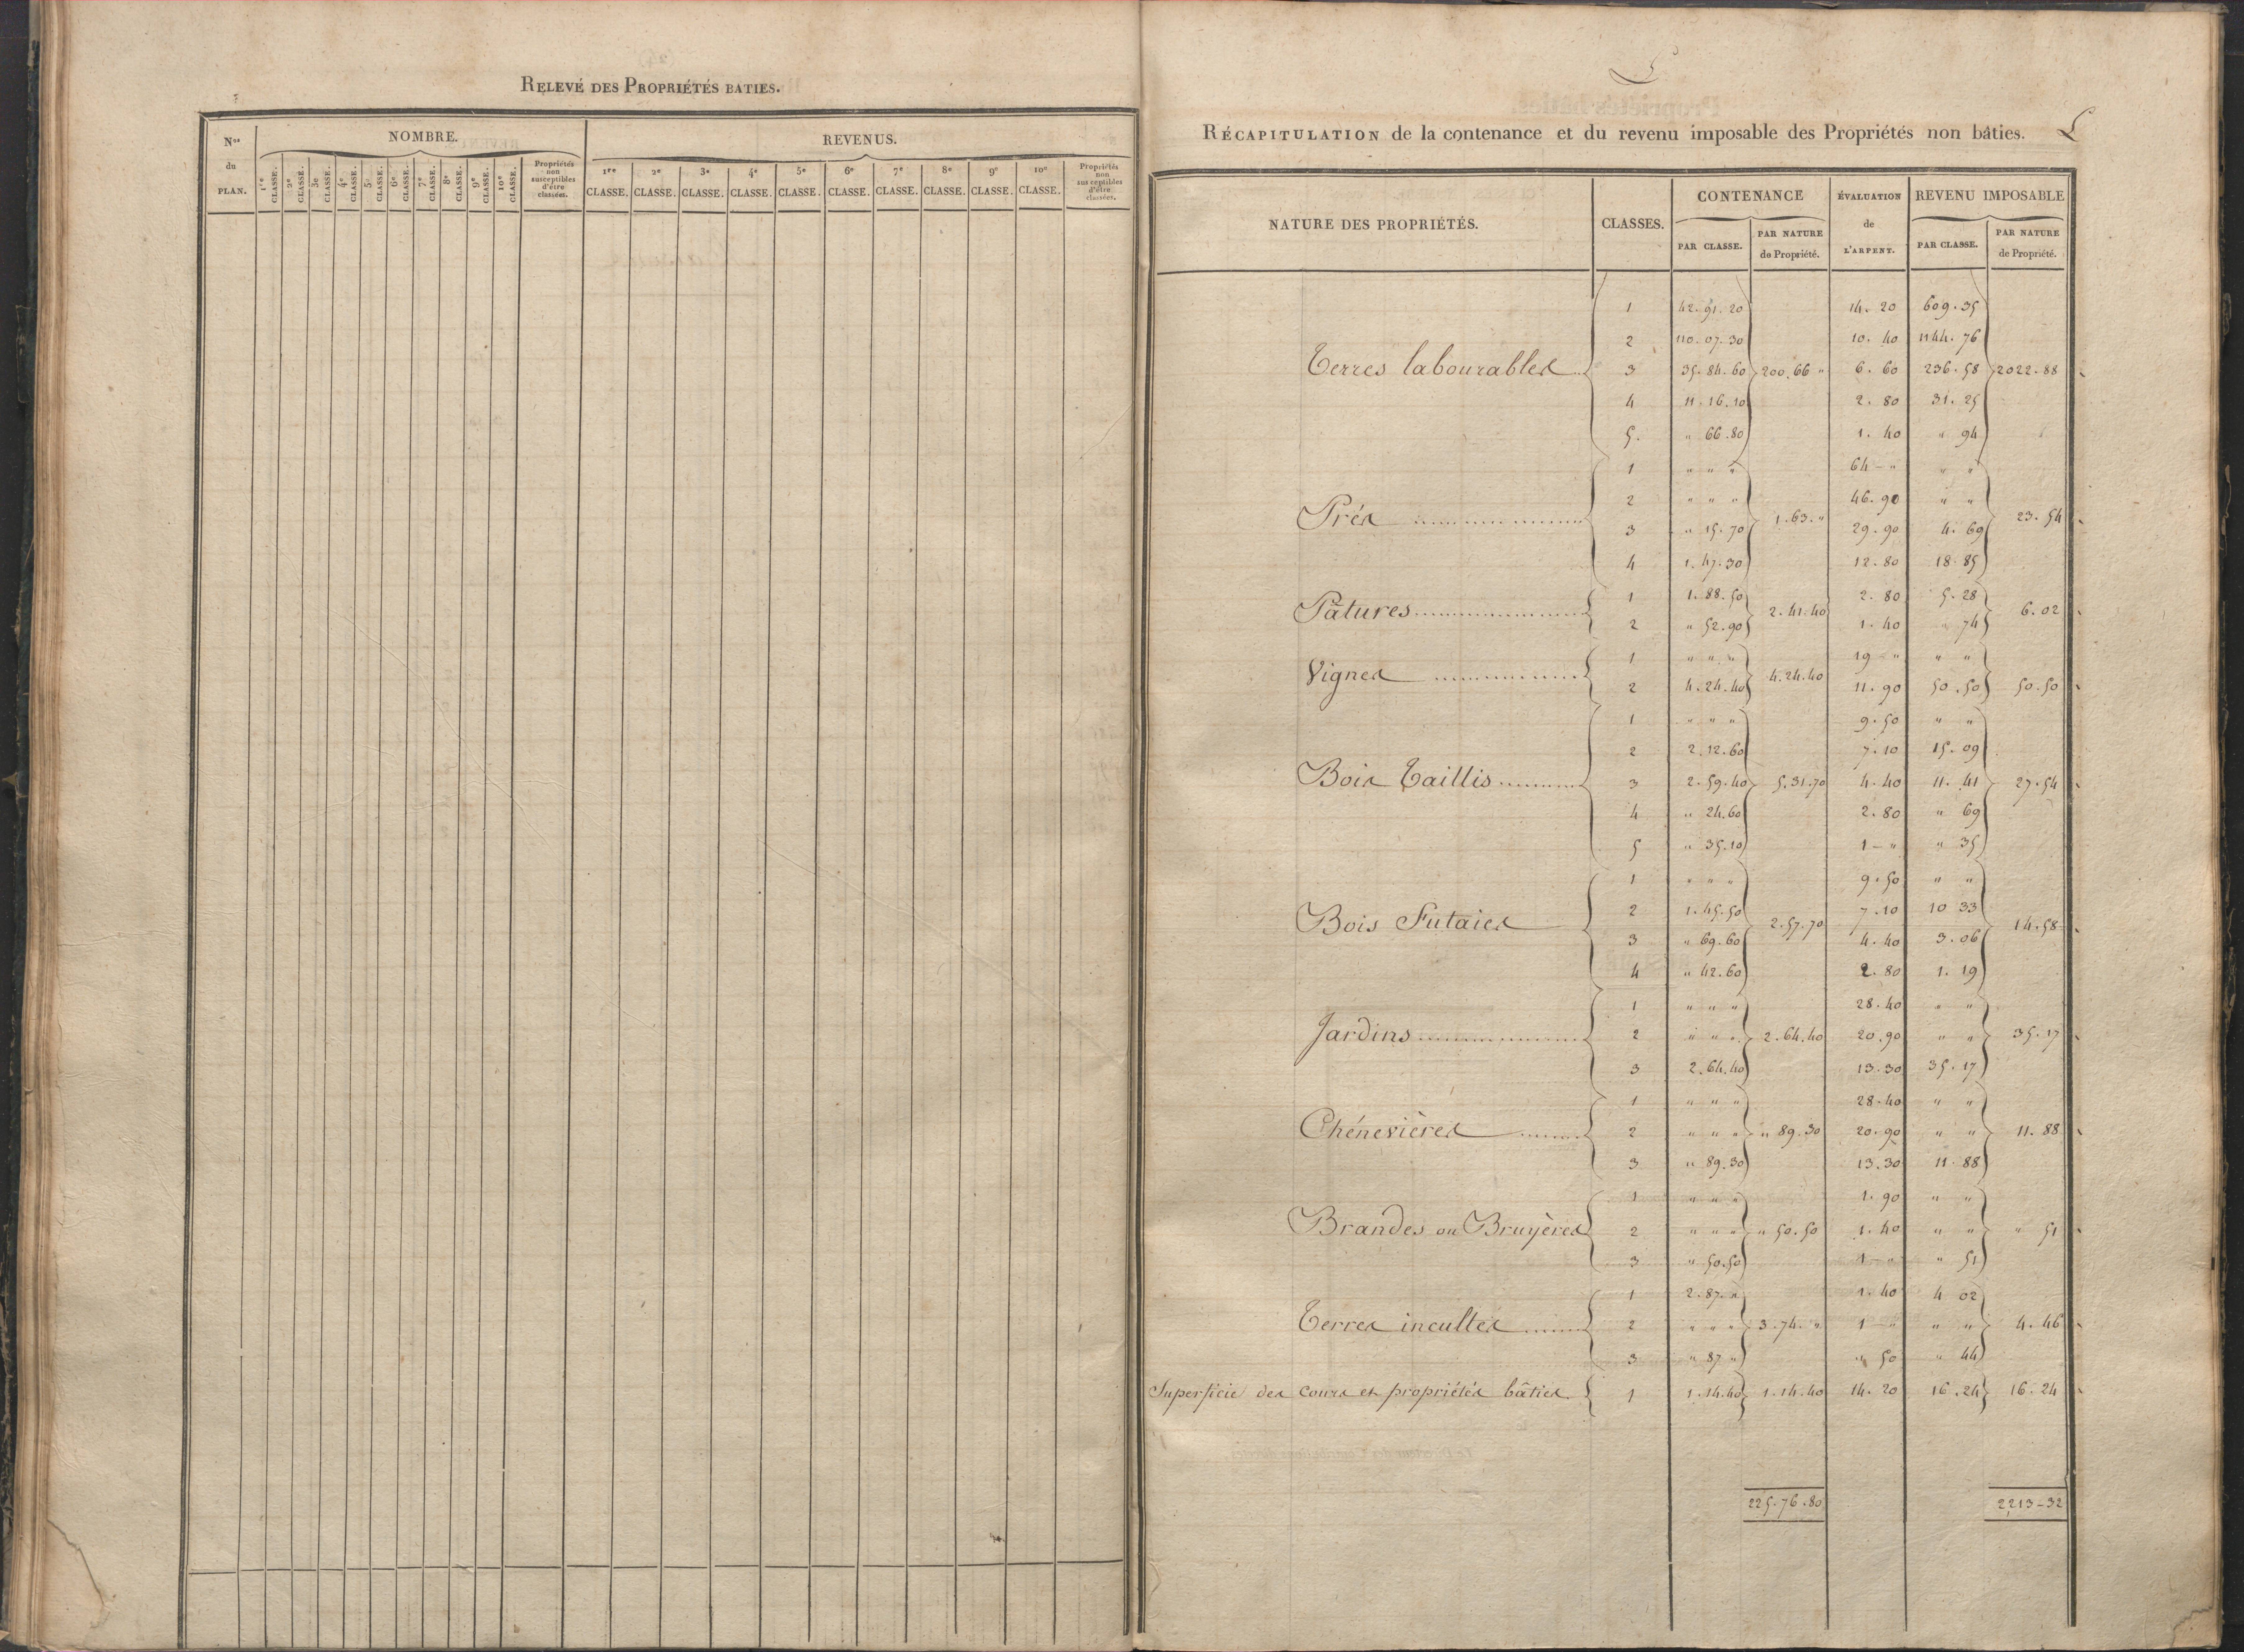 RELEVÉ DES PROPRIÉTÉS BATIES.
Nos du PLAN.
NOMBRE.
1re CLASSE. 2e CLASSE. 3e CLASSE. 4e CLASSE. 5e CLASSE. 6e CLASSE. 7e CLASSE. 8e CLASSE. 9e CLASSE. 10e CLASSE. Propriétés non susceptibles d'être classées.
REVENUS.
1re CLASSE. 2e CLASSE. 3e CLASSE. 4e CLASSE. 5e CLASSE. 6e CLASSE. 7e CLASSE. 8e CLASSE. 9e CLASSE. 10e CLASSE. Propriétés non susceptibles d'être classées.
L
RÉCAPITULATION de la contenance et du revenu imposable des Propriétés non bâties. L
NATURE DES PROPRIÉTÉS. CLASSES. CONTENANCE ÉVALUATION de L'ARPENT. REVENU IMPOSABLE
PAR CLASSE. PAR NATURE de Propriété. PAR CLASSE. PAR NATURE de Propriété.
1 42.91.20 14.20 609.35
2 110.07.30 10.40 1144.76
Terres labourables 3 35.84.60 200.66 " 6.60 236.58 2022.88
4 11.16.10 2.80 31.25
5. " 66.80 1.40 " 94
1 " " " 64 - " " "
2 " " " 46.90 " "
Prés 3 " 15.70 1.63. " 29.90 4.69 23.54
4 1.47.30 12.80 18.85
Pâtures 1 1.88.50 2.41.40 2.80 5.28 6.02
2 " 52.90 1.40 " 74
Vignes 1 " " " 4.24.40 19 - " " "
2 4.24.40 11.90 50.50 50.50
1 " " " 9.50 " "
2 2.12.60 7.10 15.09
Bois Taillis 3 2.59.40 5.31.70 4.40 11.41 27.54
4 " 24.60 2.80 " 69
5 " 35.10 1 - " " 35
1 " " " 9.50 " "
Bois Futaies 2 1.45.50 2.57.70 7.10 10 33 14.58
3 " 69.60 4.40 3.06
4 " 42.60 2.80 1.19
1 " " " 28.40 " "
Jardins 2 " " " 2.64.40 20.90 " " 35.17
3 2.64.40 13.30 35.17
1 " " " 28.40 " "
Chénevières 2 " " " " 89.30 20.90 " " 11.88
3 " 89.30 13.30 11.88
1 " " " 1.90 " "
Brandes ou Bruyères 2 " " " " 50.50 1.40 " " " 51
3 " 50.50 1 - " " 51
1 2.87. " 1.40 4 02
Terres incultes 2 " " " 3.74. " 1 - " " " 4.46
3 " 87 " " 50 " 44
Superficie des cours et propriétés bâties. 1 1.14.40 1.14.40 14.20 16.24 16.24
225.76.80 2213-32